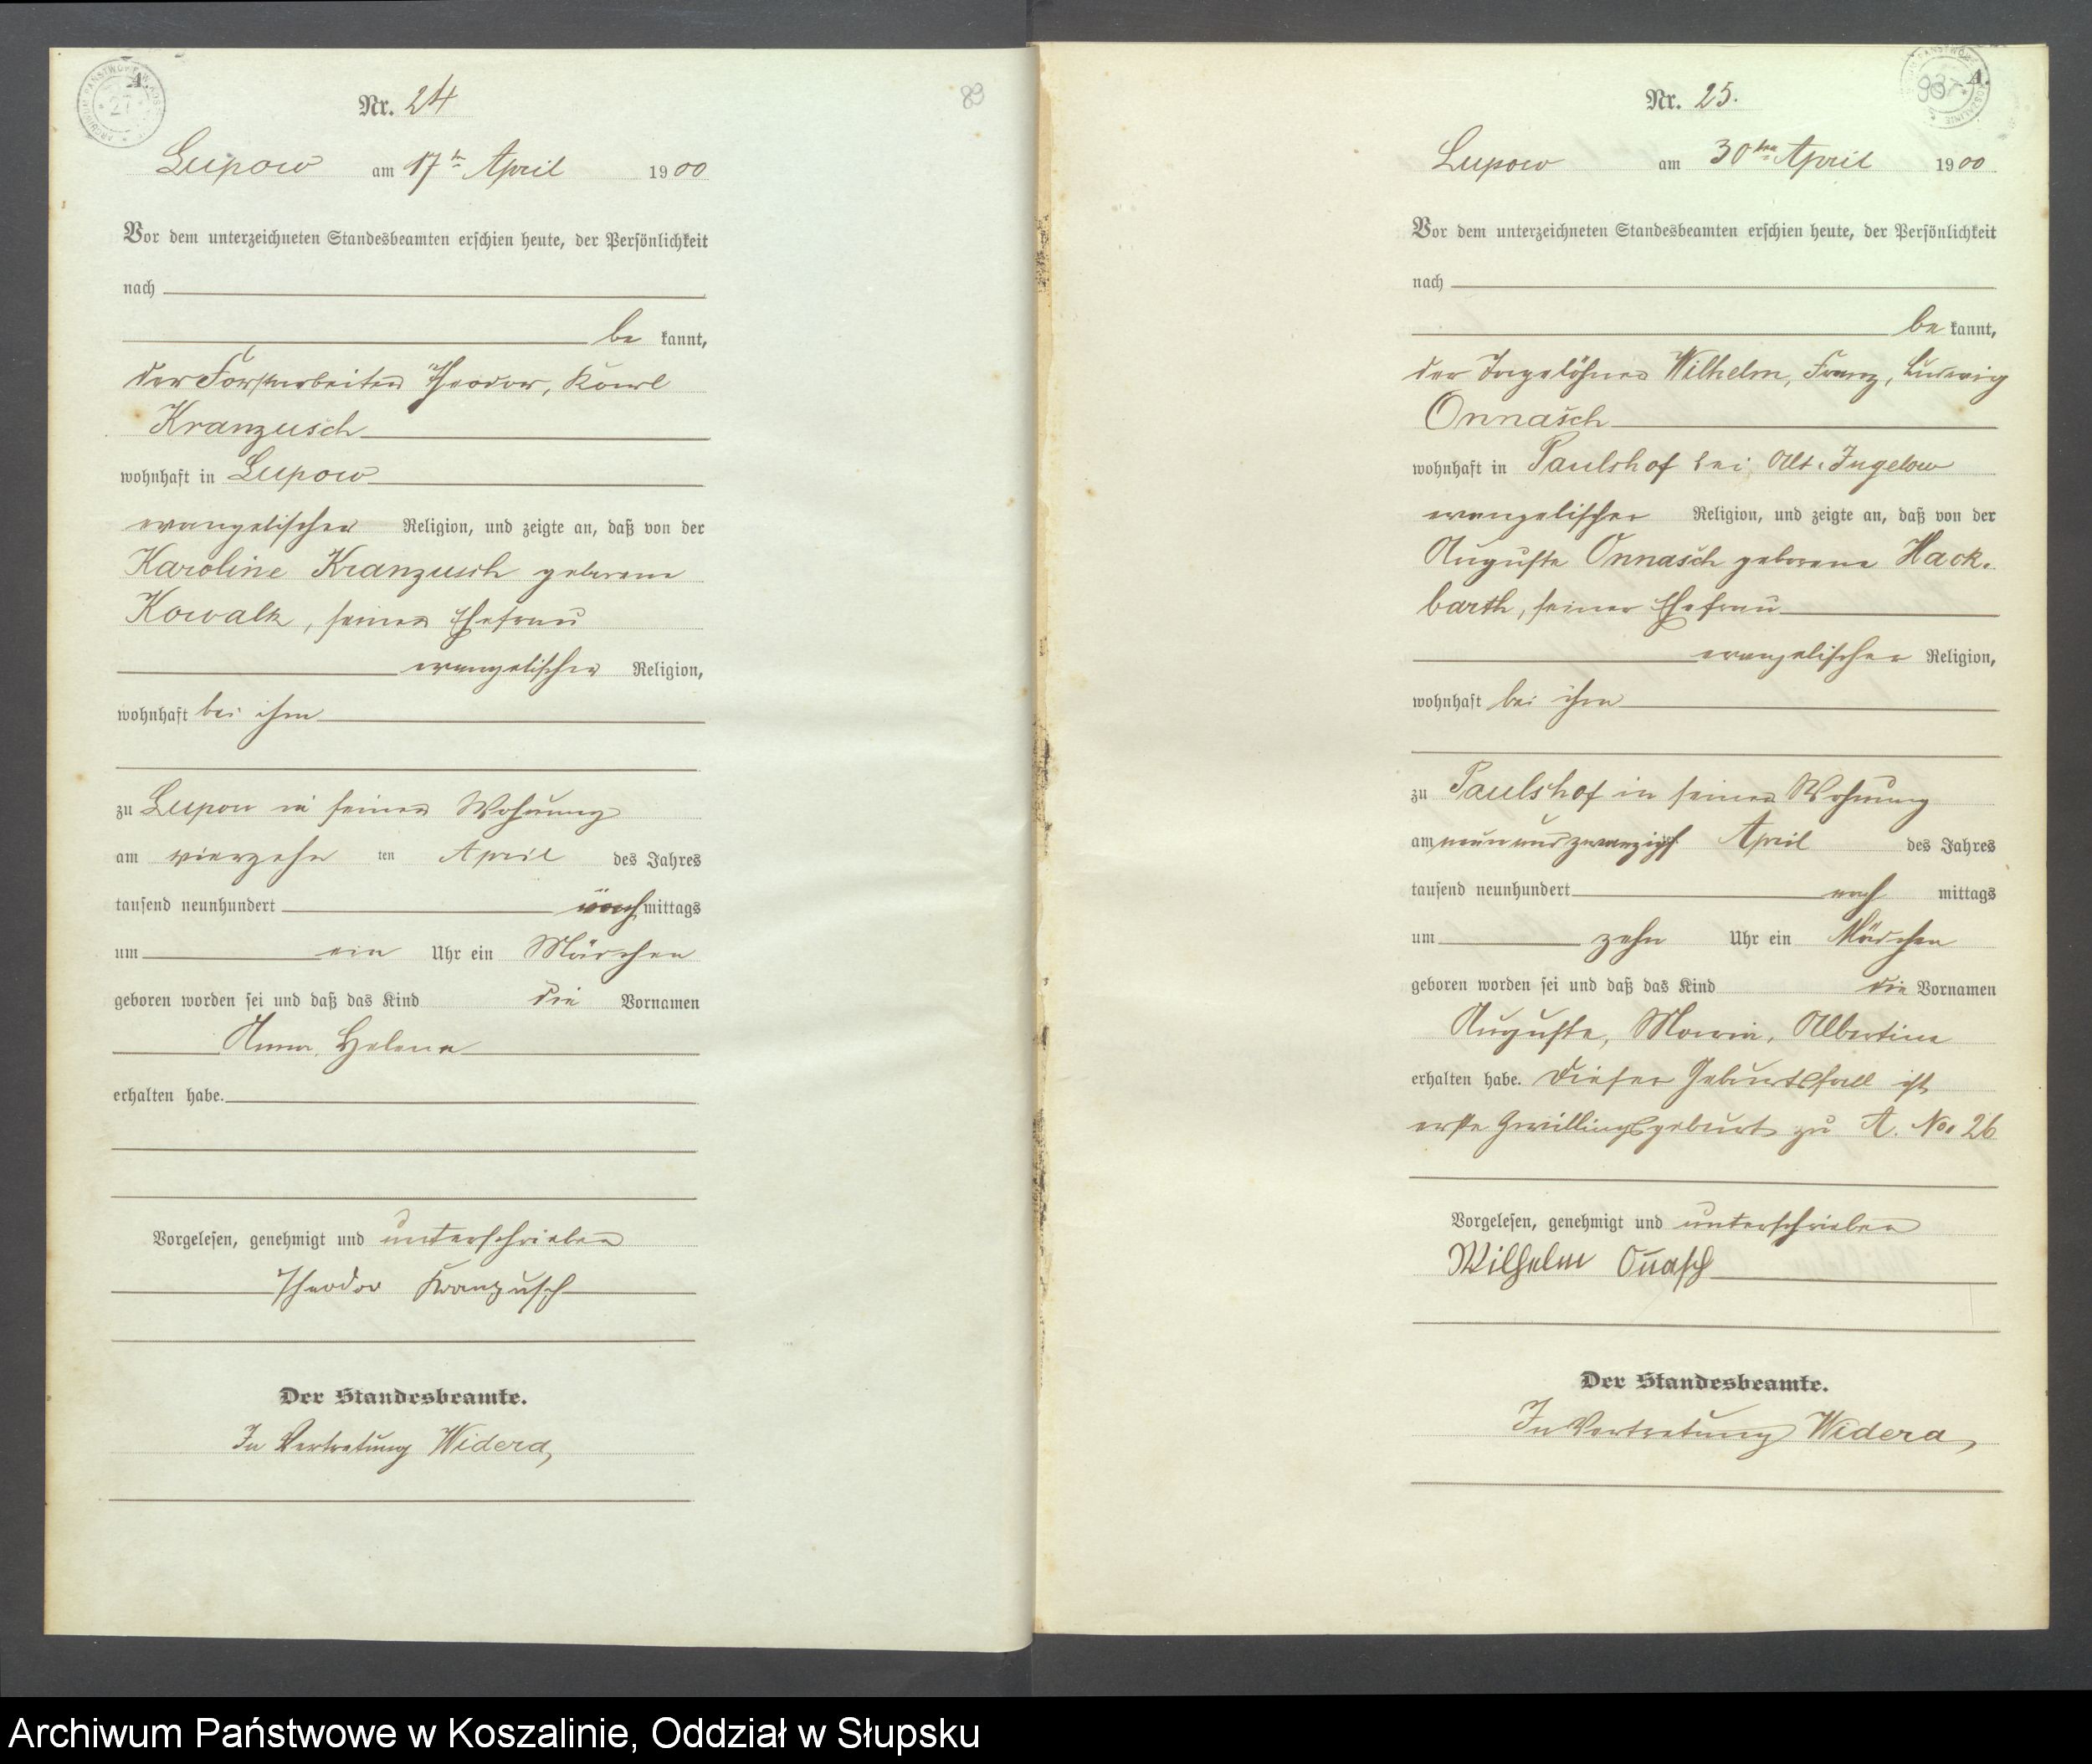 A.
Nr. 24
89
Lupow am 17ten April 1900
Vor dem unterzeichneten Standesbeamten erschien heute, der Persönlichkeit
nach
be kannt,
der Forstarbeiter Theodor, Karl
Kranzusch
wohnhaft in Lupow
evangelischer Religion, und zeigte an, daß von der
Karoline Kranzusch geborene
Kowalk, seiner Ehefrau
evangelischer Religion,
wohnhaft bei ihm
zu Lupow in seiner Wohnung
am vierzehn ten April des Jahres
tausend neunhundert mittags
um ein Uhr ein Mädchen
geboren worden sei und daß das Kind die Vornamen
Anna, Helene
erhalten habe.
Vorgelesen, genehmigt und unterschrieben
Theodor Kranzusch
Der Standesbeamte.
In Vertretung Widera
A.
Nr. 25.
Lupow am 30ten April 1900
Vor dem unterzeichneten Standesbeamten erschien heute, der Persönlichkeit
nach
be kannt,
der Tagelöhner Wilhelm, Franz, Ludwig
Onnasch
wohnhaft in Paulshof bei Alt-Jugelow
evangelischer Religion, und zeigte an, daß von der
Auguste Onnasch geborene Hack-
barth, seiner Ehefrau
evangelischer Religion,
wohnhaft bei ihm
zu Paulshof in seiner Wohnung
am neunundzwanzigst April des Jahres
tausend neunhundert nach mittags
um zehn Uhr ein Mädchen
geboren worden sei und daß das Kind die Vornamen
Auguste, Maria, Albertine
erhalten habe. Dieser Geburtsfall ist
erste Zwillingsgeburt zu A. No. 26
Vorgelesen, genehmigt und unterschrieben
Wilhelm Onasch
Der Standesbeamte.
In Vertretung Widera
Archiwum Państwowe w Koszalinie, Oddział w Słupsku